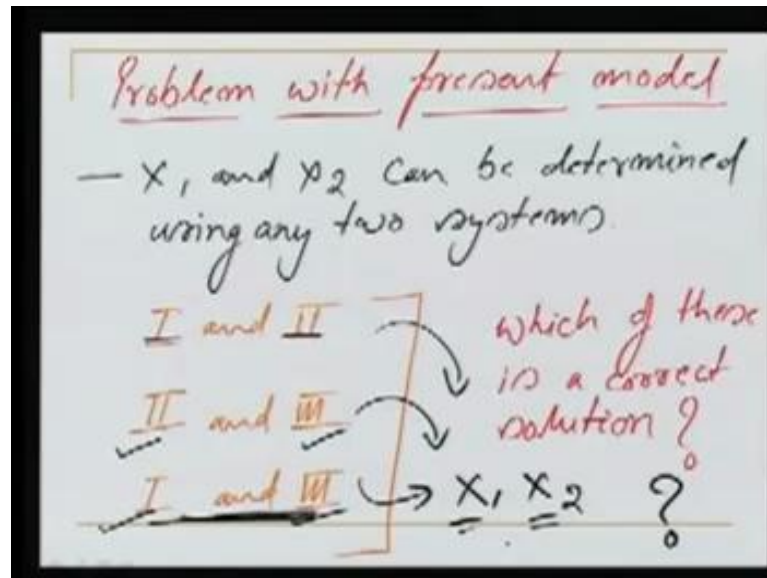 Problem with present model
— x₁ and x₂ can be determined
using any two systems
I and II
II and III
I and III
which of these
is a correct
solution ?
x₁ x₂ ?